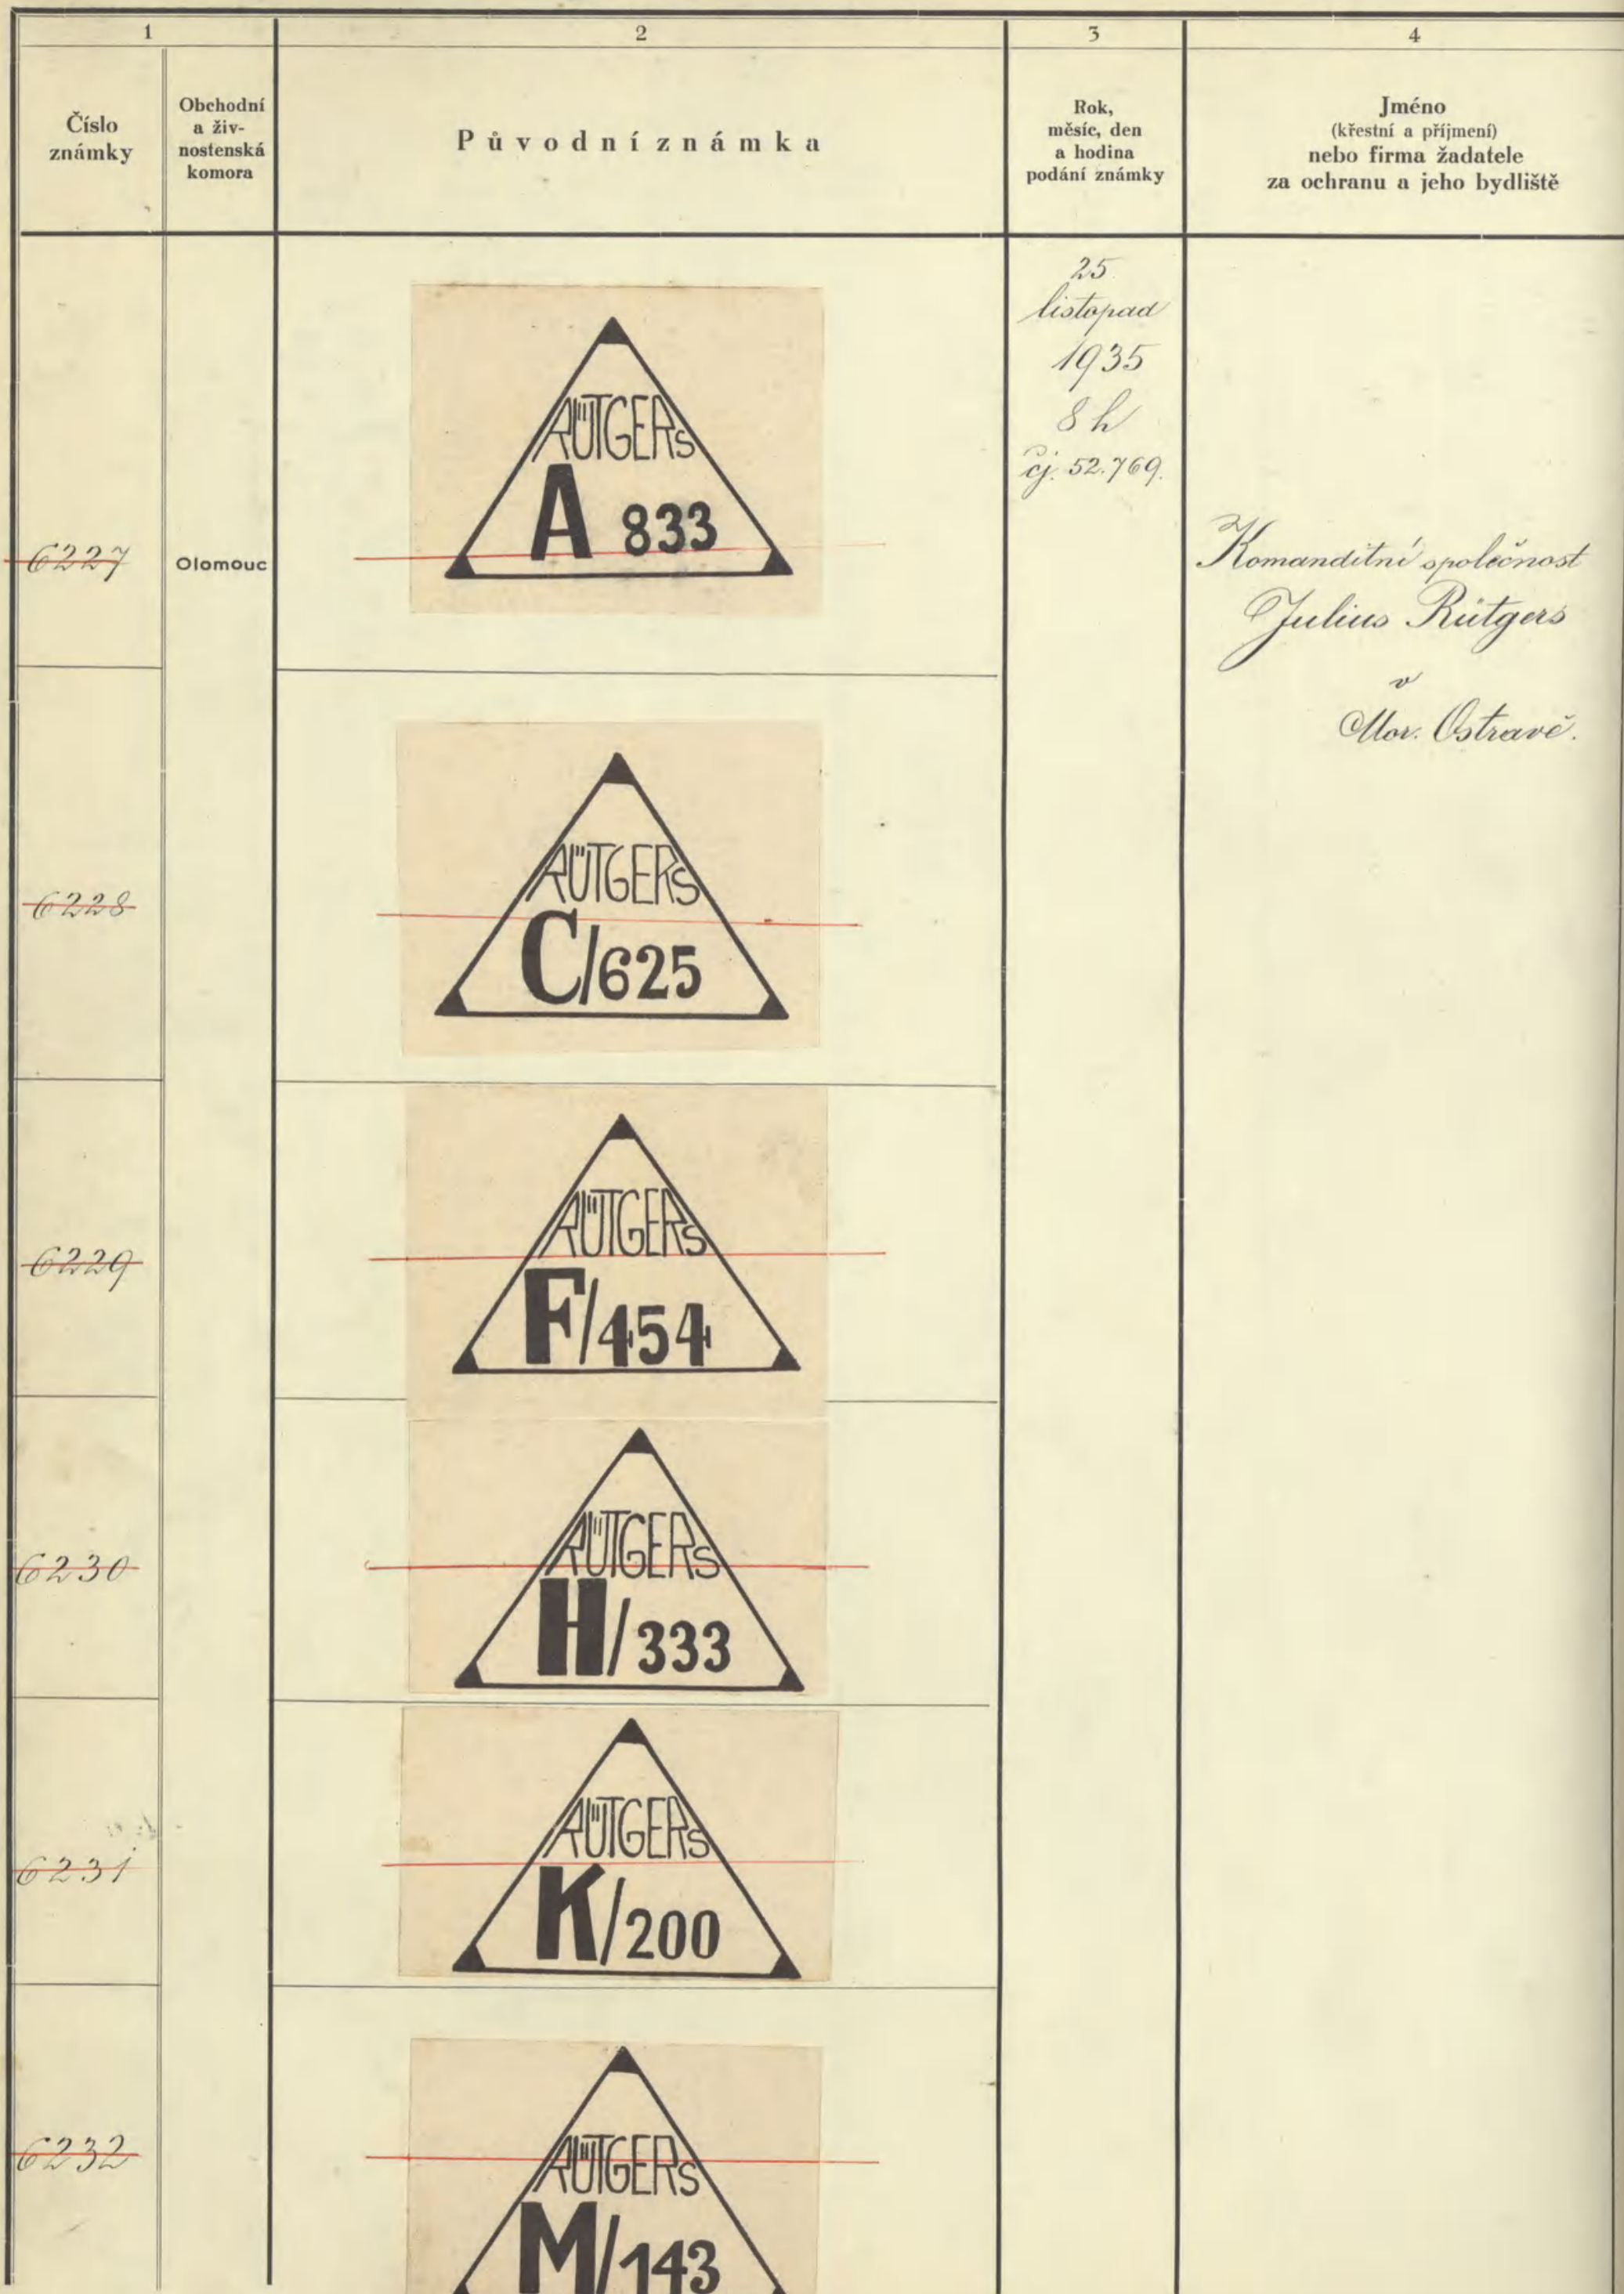 1
2
3
4
Číslo
známky
Obchodní
a živ-
nostenská
komora
Původní známka
Rok,
měsíc, den
a hodina
podání známky
Jméno
(křestní a příjmení)
nebo firma žadatele
za ochranu a jeho bydliště
6227
Olomouc
RÜTGERS
A 833
25.
listopad
1935
8 h
čj. 52.769.
Komanditní společnost
Julius Rütgers
v
Mor. Ostravě.
6228
RÜTGERS
C/625
6229
RÜTGERS
F/454
6230
RÜTGERS
H/333
6231
RÜTGERS
K/200
6232
RÜTGERS
M/143